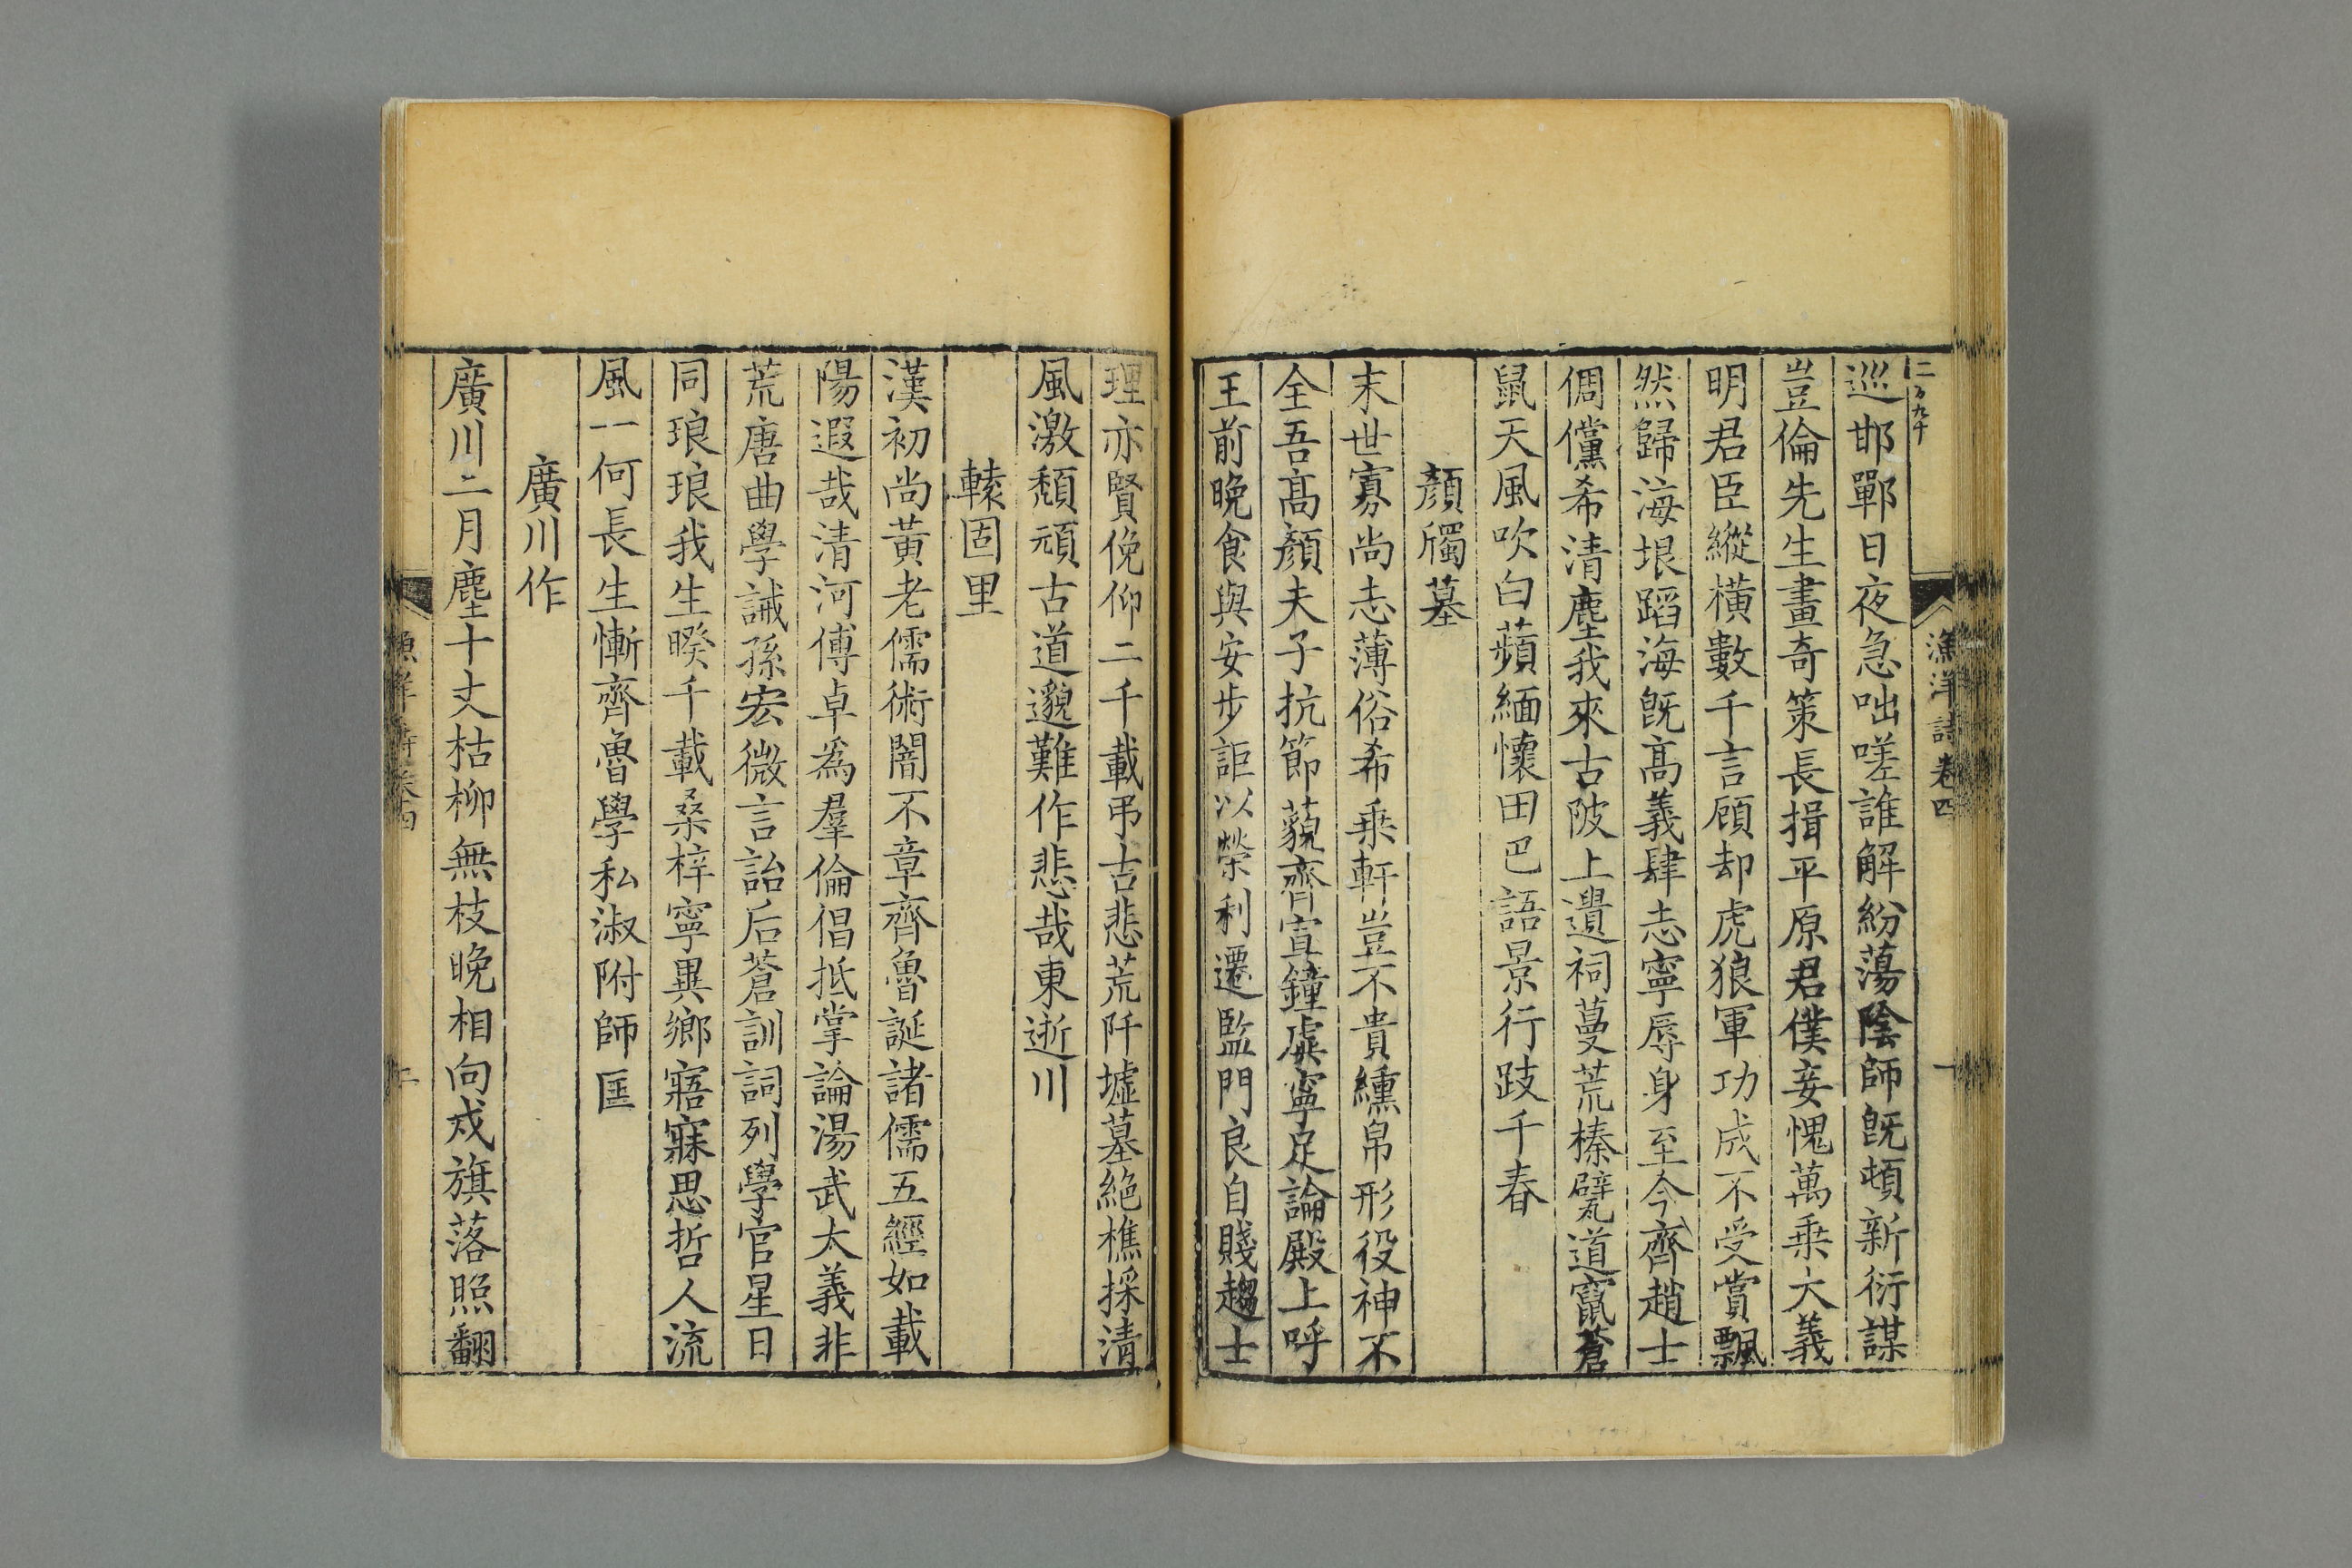 漁洋詩卷四
一
巡邯鄲日夜急咄嗟誰解紛蕩陰師旣頓新衍謀
豈倫先生畫奇策長揖平原君僕妾愧萬乗大義
明君臣縱橫數千言顧却虎狼軍功成不受賞飄
然歸海垠蹈海旣髙義肆志寧辱身至今齊趙士
倜儻希清塵我來古陂上遺祠蔓荒榛甓道竄蒼
鼠天風吹白蘋緬懷田巴語景行跂千春
顏斶墓
末世寡尚志薄俗希乗軒豈不貴纁帛形役神不
全吾髙顏夫子抗節藐齊宣鐘虡寧足論殿上呼
王前晚食與安步詎以榮利遷監門良自賤趨士
理亦賢俛仰二千載弔古悲荒阡墟墓絶樵採清
風激頽頑古道邈難作悲哉東逝川
轅固里
漢初尚黃老儒術闇不章齊魯誕諸儒五經如載
陽遐哉清河傅卓爲羣倫倡抵掌論湯武太義非
荒唐曲學誡孫宏微言詒后蒼訓詞列學官星日
同琅琅我生睽千載桑梓寧異鄉寤寐思哲人流
風一何長生慚齊魯學私淑附師匡
廣川作
廣川二月塵十丈枯柳無枝晚相向戍旗落照翻
漁洋詩卷四
二